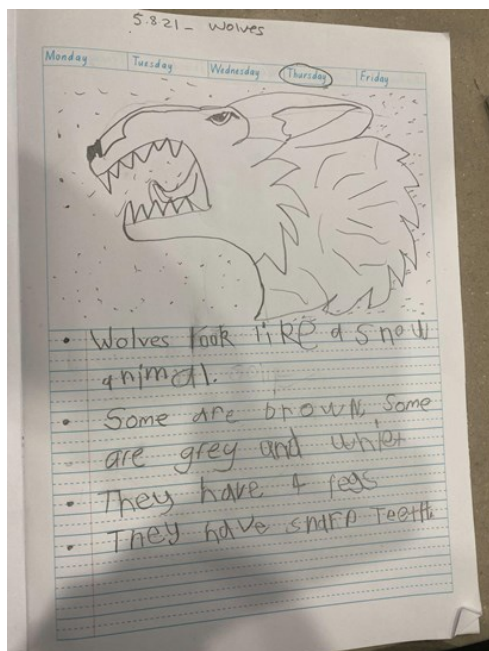 5.8.21 - Wolves
Monday Tuesday Wednesday Thursday Friday
• Wolves look like a snow
animal.
• Some are brown, Some
are grey and whiet
• They have 4 legs
• They have sharp Teeth.